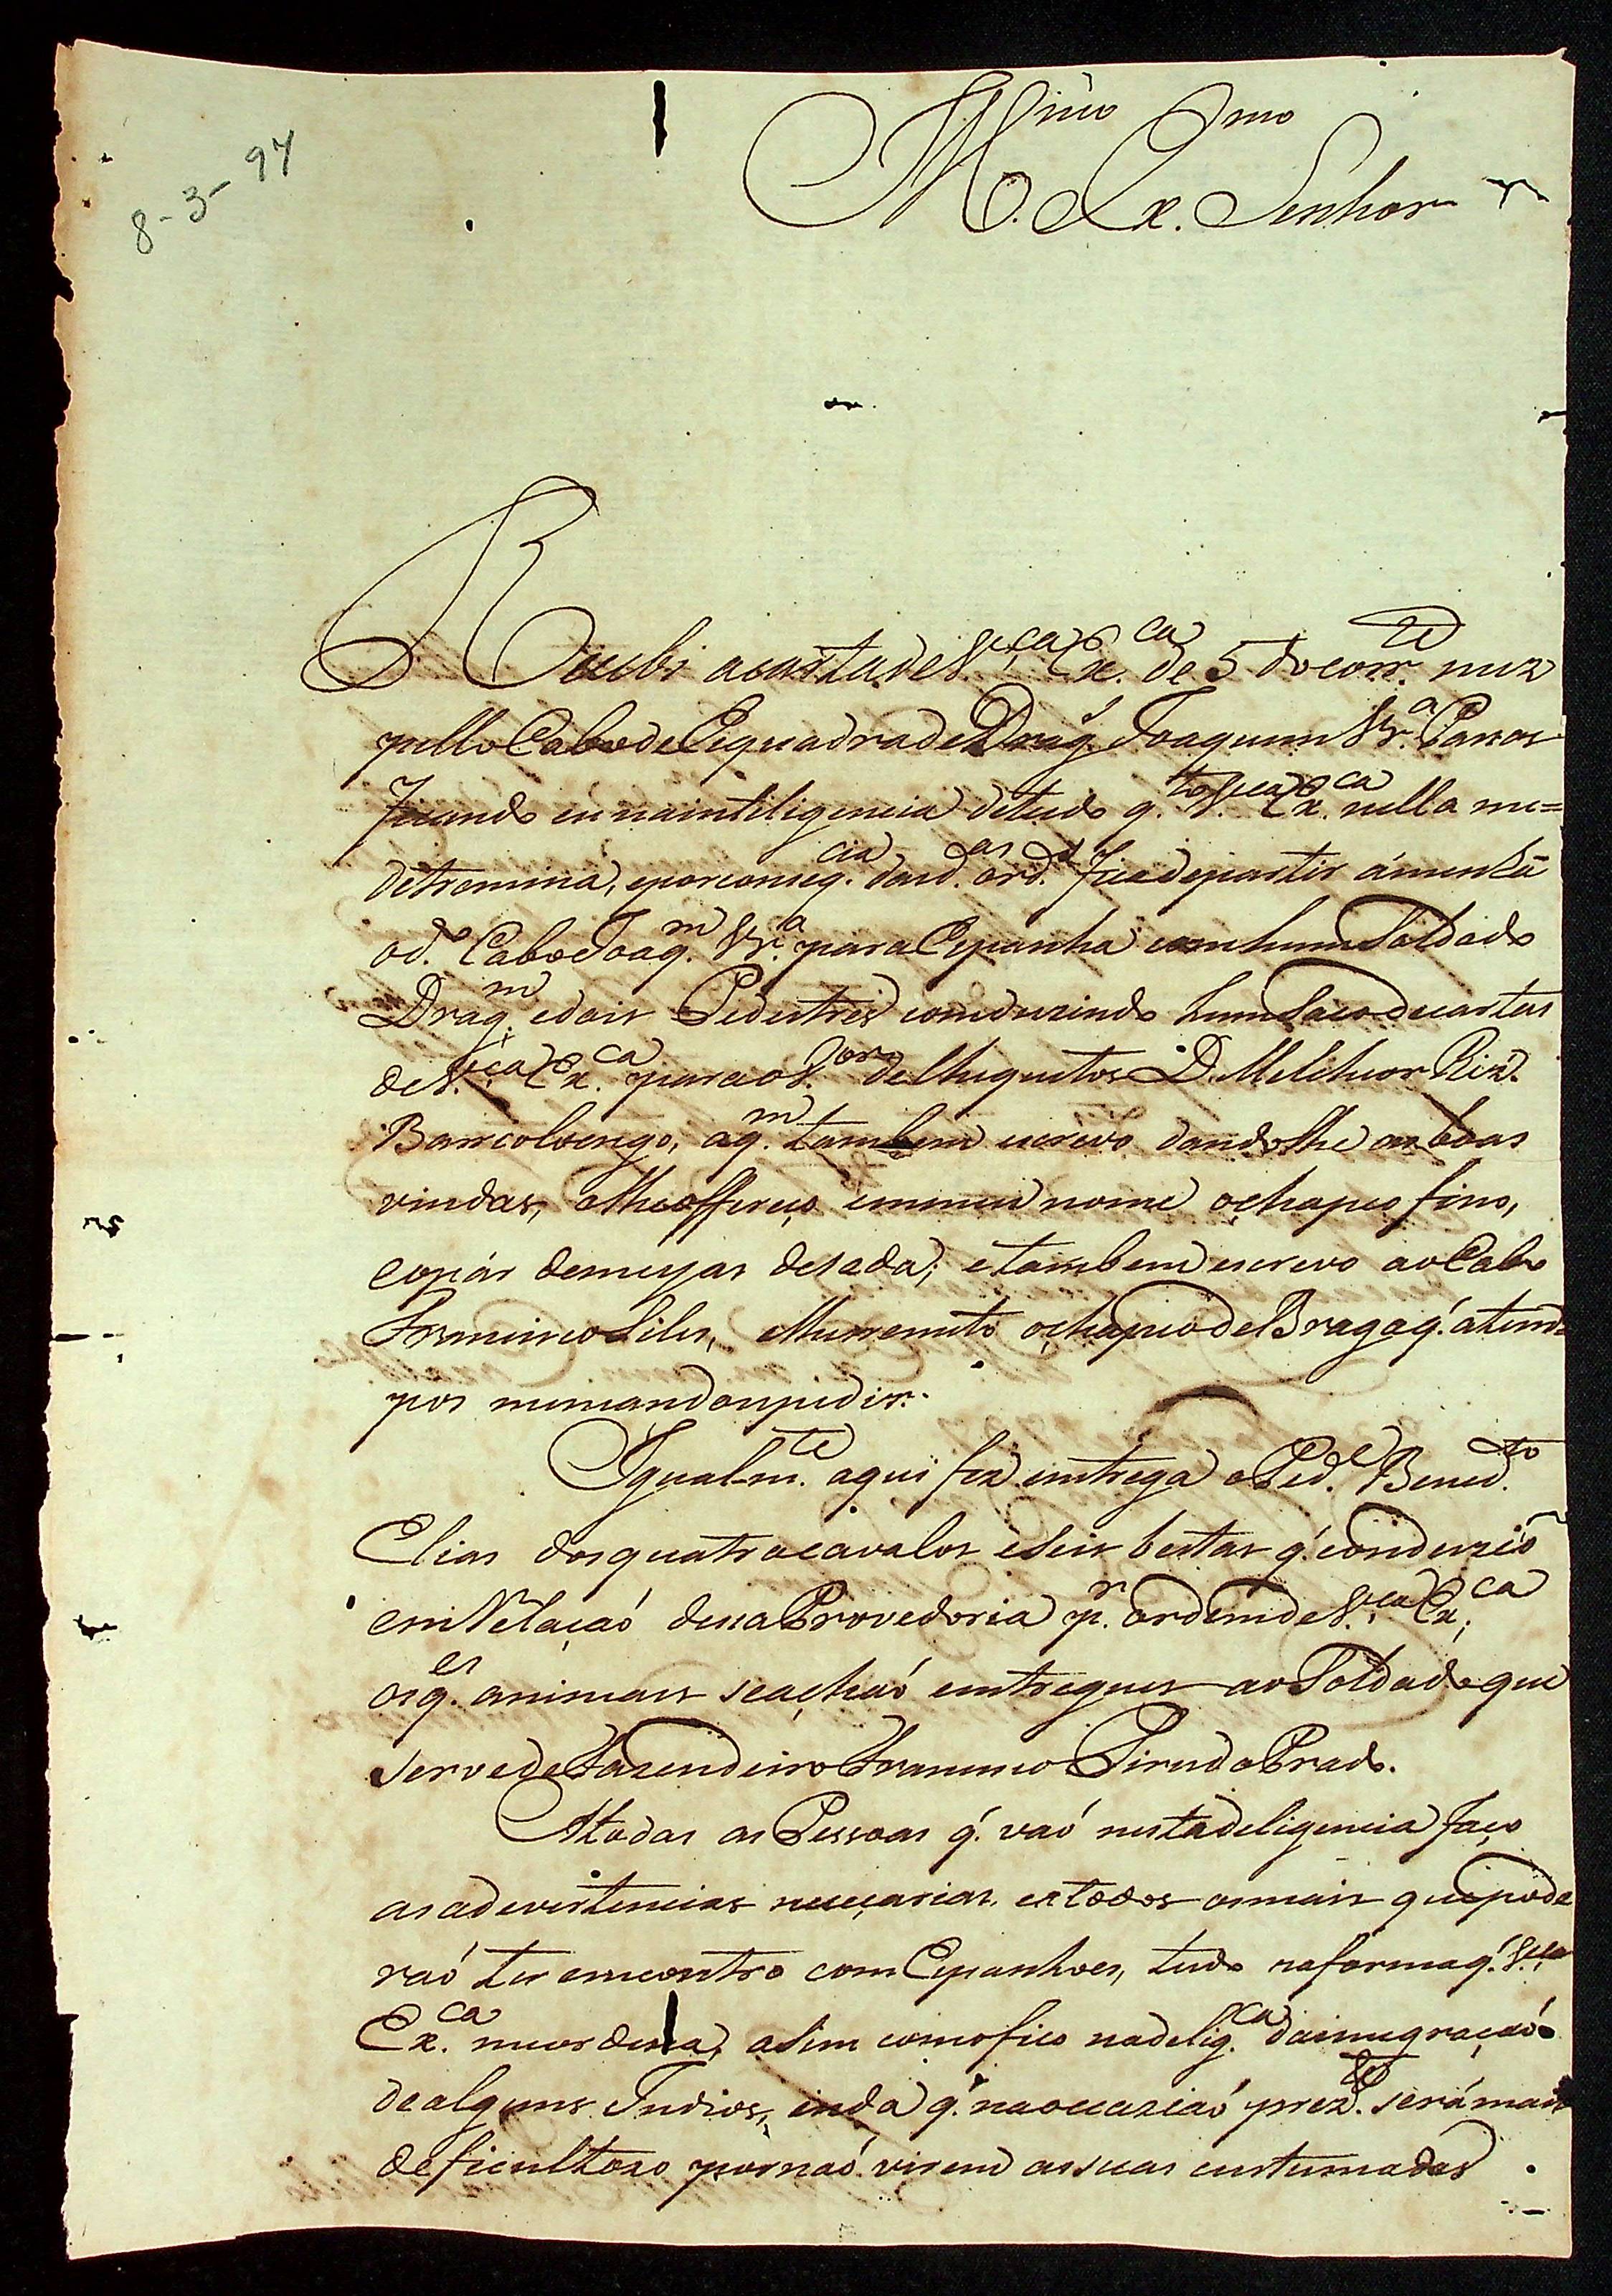 8-3-97
Illmo Exmo
Senhor
Recebi acarta de V.ca Ex.ca de 5 do corr.te mez
pello Cabo de Esquadra de Drag.s Joaquim Vr.a Passos
ficando eu na inteligencia de tudo q.to V.ca Ex.ca nella me=
detremina, eporconseq.cia das d.as ord.s fica departir ámenhã
od.o Cabo Joaq.m Vr.a para Espanha com hum Soldado
Drag.m edois Pedestres comduzindo hum Saco decartas
de V.ca Ex.ca para o G.or de Chequitos D. Melchior Riz.
Barcolvengo, aq.m tambem escrevo dandolhe as boas
vindas, elhe offereço em meu nome o chapeo fino,
eopár demeyas deseda; etambem escrevo ao Cabo
Framcisco Liler, elhe remeto o chapeo de Braga q.' atem=
pos memandou pedir.
Igualm.te aqui fez emtrega o Ped.e Bened.to
Elias dos quatro cavalos eseis bestas q.' conduzió
em Relaçaó dessa Provedoria p.r ordem de V.ca Ex.ca;
os q.es animais seacháó emtregues ao Soldado que
serve de Fazendeiro Framcisco Pires do Prado.
Atodas as Pessoas q.' vaó nestadeligencia faço
as adevertencias neceçarias, eatodos osmais quepode
raó ter emcontro com Espanhoes, tudo naforma q.' V.ca
Ex.ca meordena, asim comofico nadelig.ca daimegraçaó
dealguns Indios, inda q.' naocaziaó prez.te serámais
deficultozo pornaó virem assuas custumadas